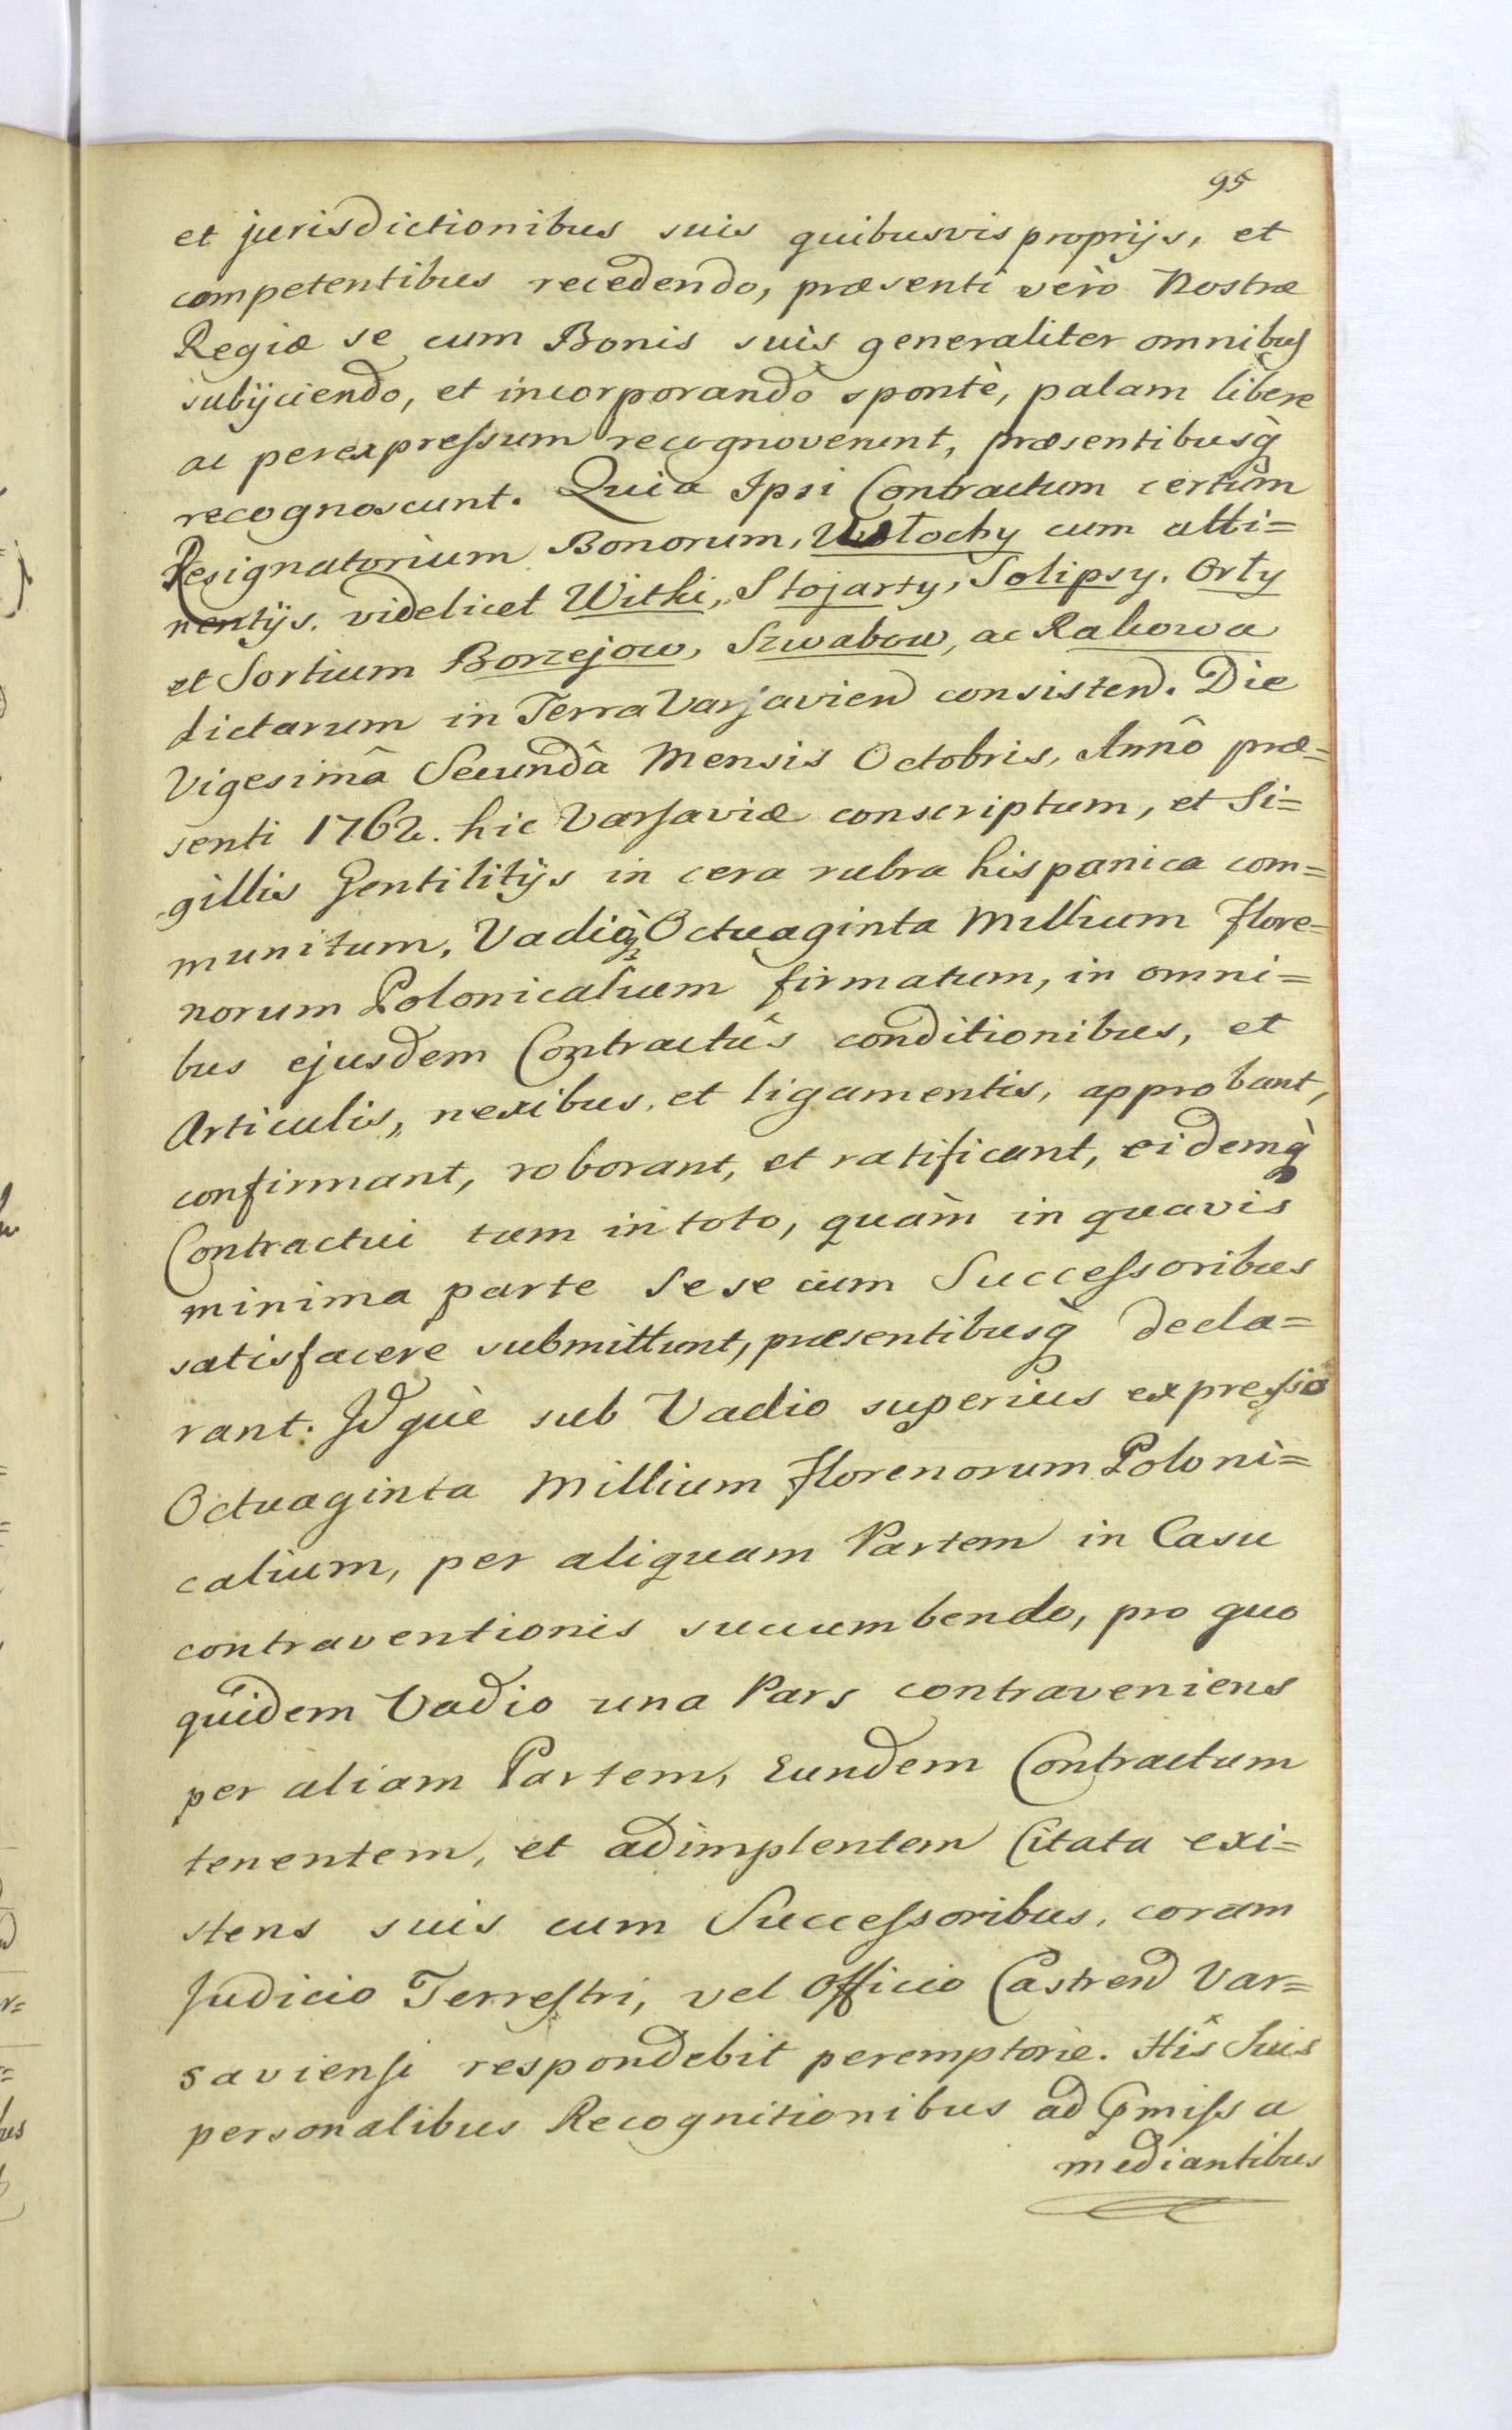 95
et jurisdictionibus suis quibusvis proprijs, et
competentibus recedendo, præsenti verò Nostræ
Regiæ se cum Bonis suis generaliter omnibus
subijciendo, et incorporando spontè, palam libere
ac per expressum recognoverunt, præsentibusq̀
recognoscunt. Quia Ipsi Contractum certum
Resignatorium Bonorum, Włochy cum atti=
nentijs. videlicet Witki, Stojarty, Solipsy. Orły
et Sortium Borzejow, Szwabow, ac Rakowa
dictarum in Terra Varsavien consisten. Die
Vigesimâ Secundâ Mensis Octobris, Annô præ=
senti 1762. hic Varsaviæ conscriptum, et Si=
gillis Gentilitijs in cera rubra hispanica com=
munitum, Vadioq̀ Octuaginta Millium Flore=
norum Polonicalium firmatum, in omni=
bus ejusdem Contractûs conditionibus, et
Articulis, nexibus, et ligamentis, approbant,
confirmant, roborant, et ratificant, eidemq̀
Contractui tam in toto, quàm in quavis
minima parte Sese cum Successoribus
satisfacere submittunt, præsentibusq̀ decla=
rant. Idquè sub Vadio superius expresso
Octuaginta Millium Florenorum Poloni=
calium, per aliquam Partem in Casu
contraventionis succumbendo, pro quo
quidem Vadio una Pars contraveniens
per aliam Partem, Eundem Contractum
tenentem, et adimplentem Citata exi=
stens suis cum Successoribus, coram
Judicio Terrestri, vel Officio Castren Var=
saviensi respondebit peremptoriè. Hîs Suis
personalibus Recognitionibus ad Pmissa
mediantibus